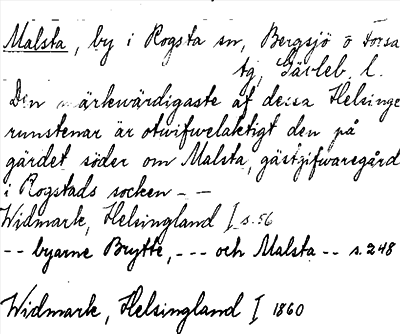 Malsta, by i Rogsta sn, Bergsjö o Forsa
tg, Gävleb. l.
Den märkwärdigaste af dessa Helsinge
runstenar är otwifwelaktigt den på
gärdet söder om Malsta, gästgifwaregård
i Rogstads socken – –
Widmark, Helsingland I s. 56
-- byarne Brytte, --- och Malsta -- s. 248
Widmark, Helsingland I 1860